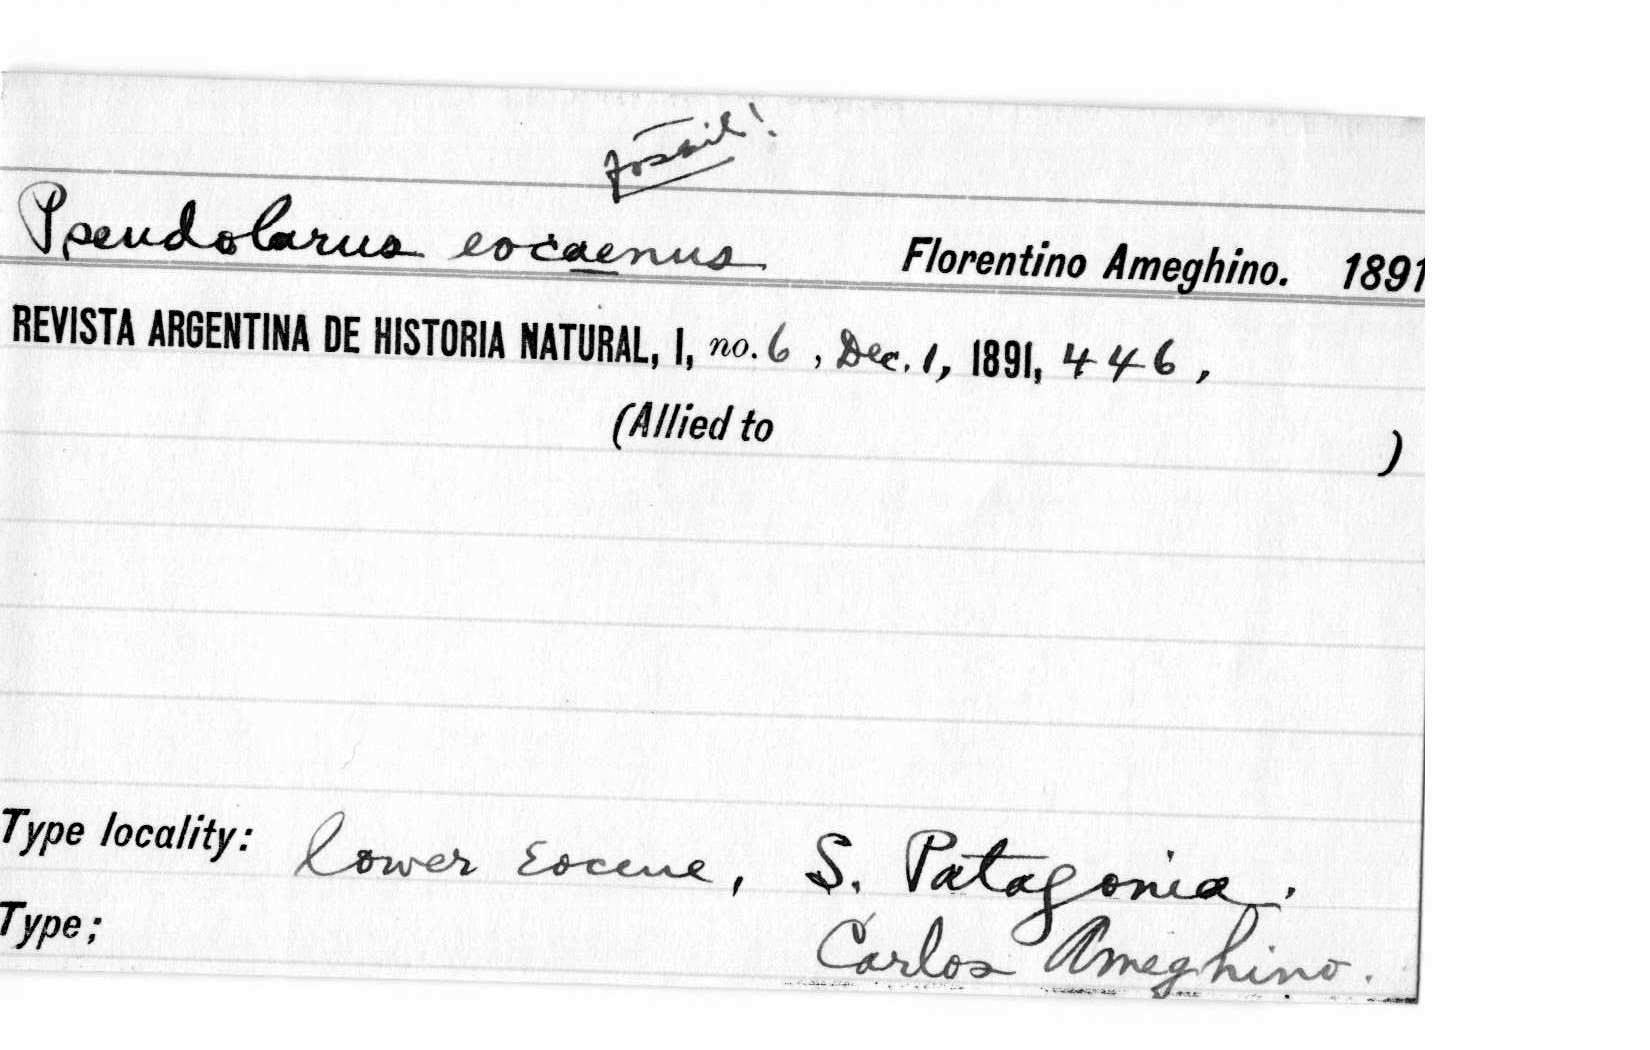 fossil!
Pseudolarus eocaenus Florentino Ameghino. 1891
REVISTA ARGENTINA DE HISTORIA NATURAL, I, no. 6, Dec. 1, 1891, 446,
(Allied to )
Type locality: lower Eocene, S. Patagonia.
Type; Carlos Ameghino.